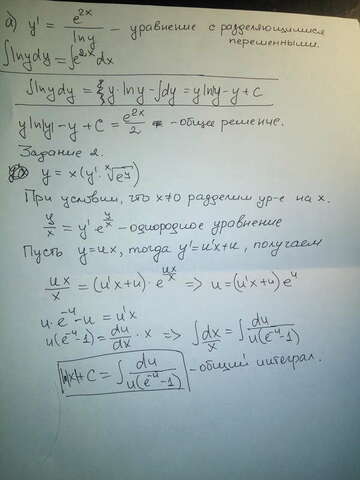 а) y' = e^{2x}/ln y - уравнение с разделяющимися переменными.
∫ln y dy = ∫e^{2x}dx
∫ln y dy = y·ln y - ∫dy = y ln y - y + C
y ln|y| - y + C = e^{2x}/2 - общее решение.
Задание 2.
y = x(y'·ˣ√e^y)
При условии, что x≠0 разделим ур-е на x.
y/x = y' e^{y/x} - однородное уравнение
Пусть y=ux, тогда y'=u'x+u, получаем
ux/x = (u'x+u)·e^{ux/x} => u=(u'x+u)e^u
u·e^{-u}-u = u'x
u(e^{-u}-1) = du/dx · x => ∫dx/x = ∫du/u(e^{-u}-1)
ln|x|+C = ∫du/u(e^{-u}-1) - общий интеграл.